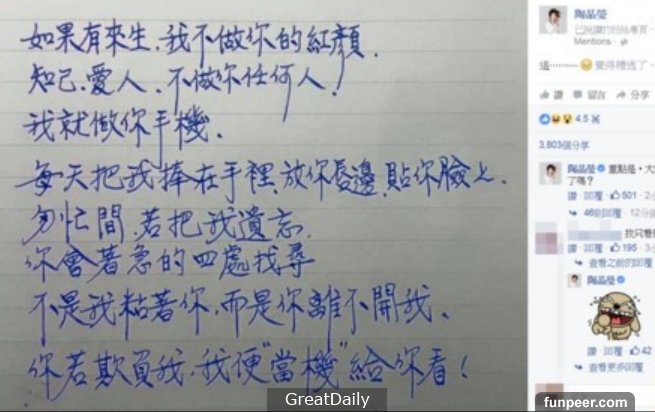 如果有來生,我不做你的紅顏.
知己.愛人.不做你任何人!
我就做你手機.
每天把我捧在手裡.放你唇邊.貼你臉上.
匆忙間.若把我遺忘.
你會著急的四處找尋
不是我粘著你,而是你離不開我.
你若欺負我,我便"當機"給你看!
陶晶瑩
已說讚的粉絲專頁
Mentions
這………
覺得禮透了。
讚 留言 分享
4.5 萬
3,803個分享
陶晶瑩 重點是,大
了嗎?
讚 · 回覆 · 501 · 2
46則回覆 · 12分
我只看
讚 · 回覆 · 195 · 3
查看之前的回覆
陶晶瑩
讚 · 回覆 · 42
查看更多回覆
GreatDaily
funpeer.com